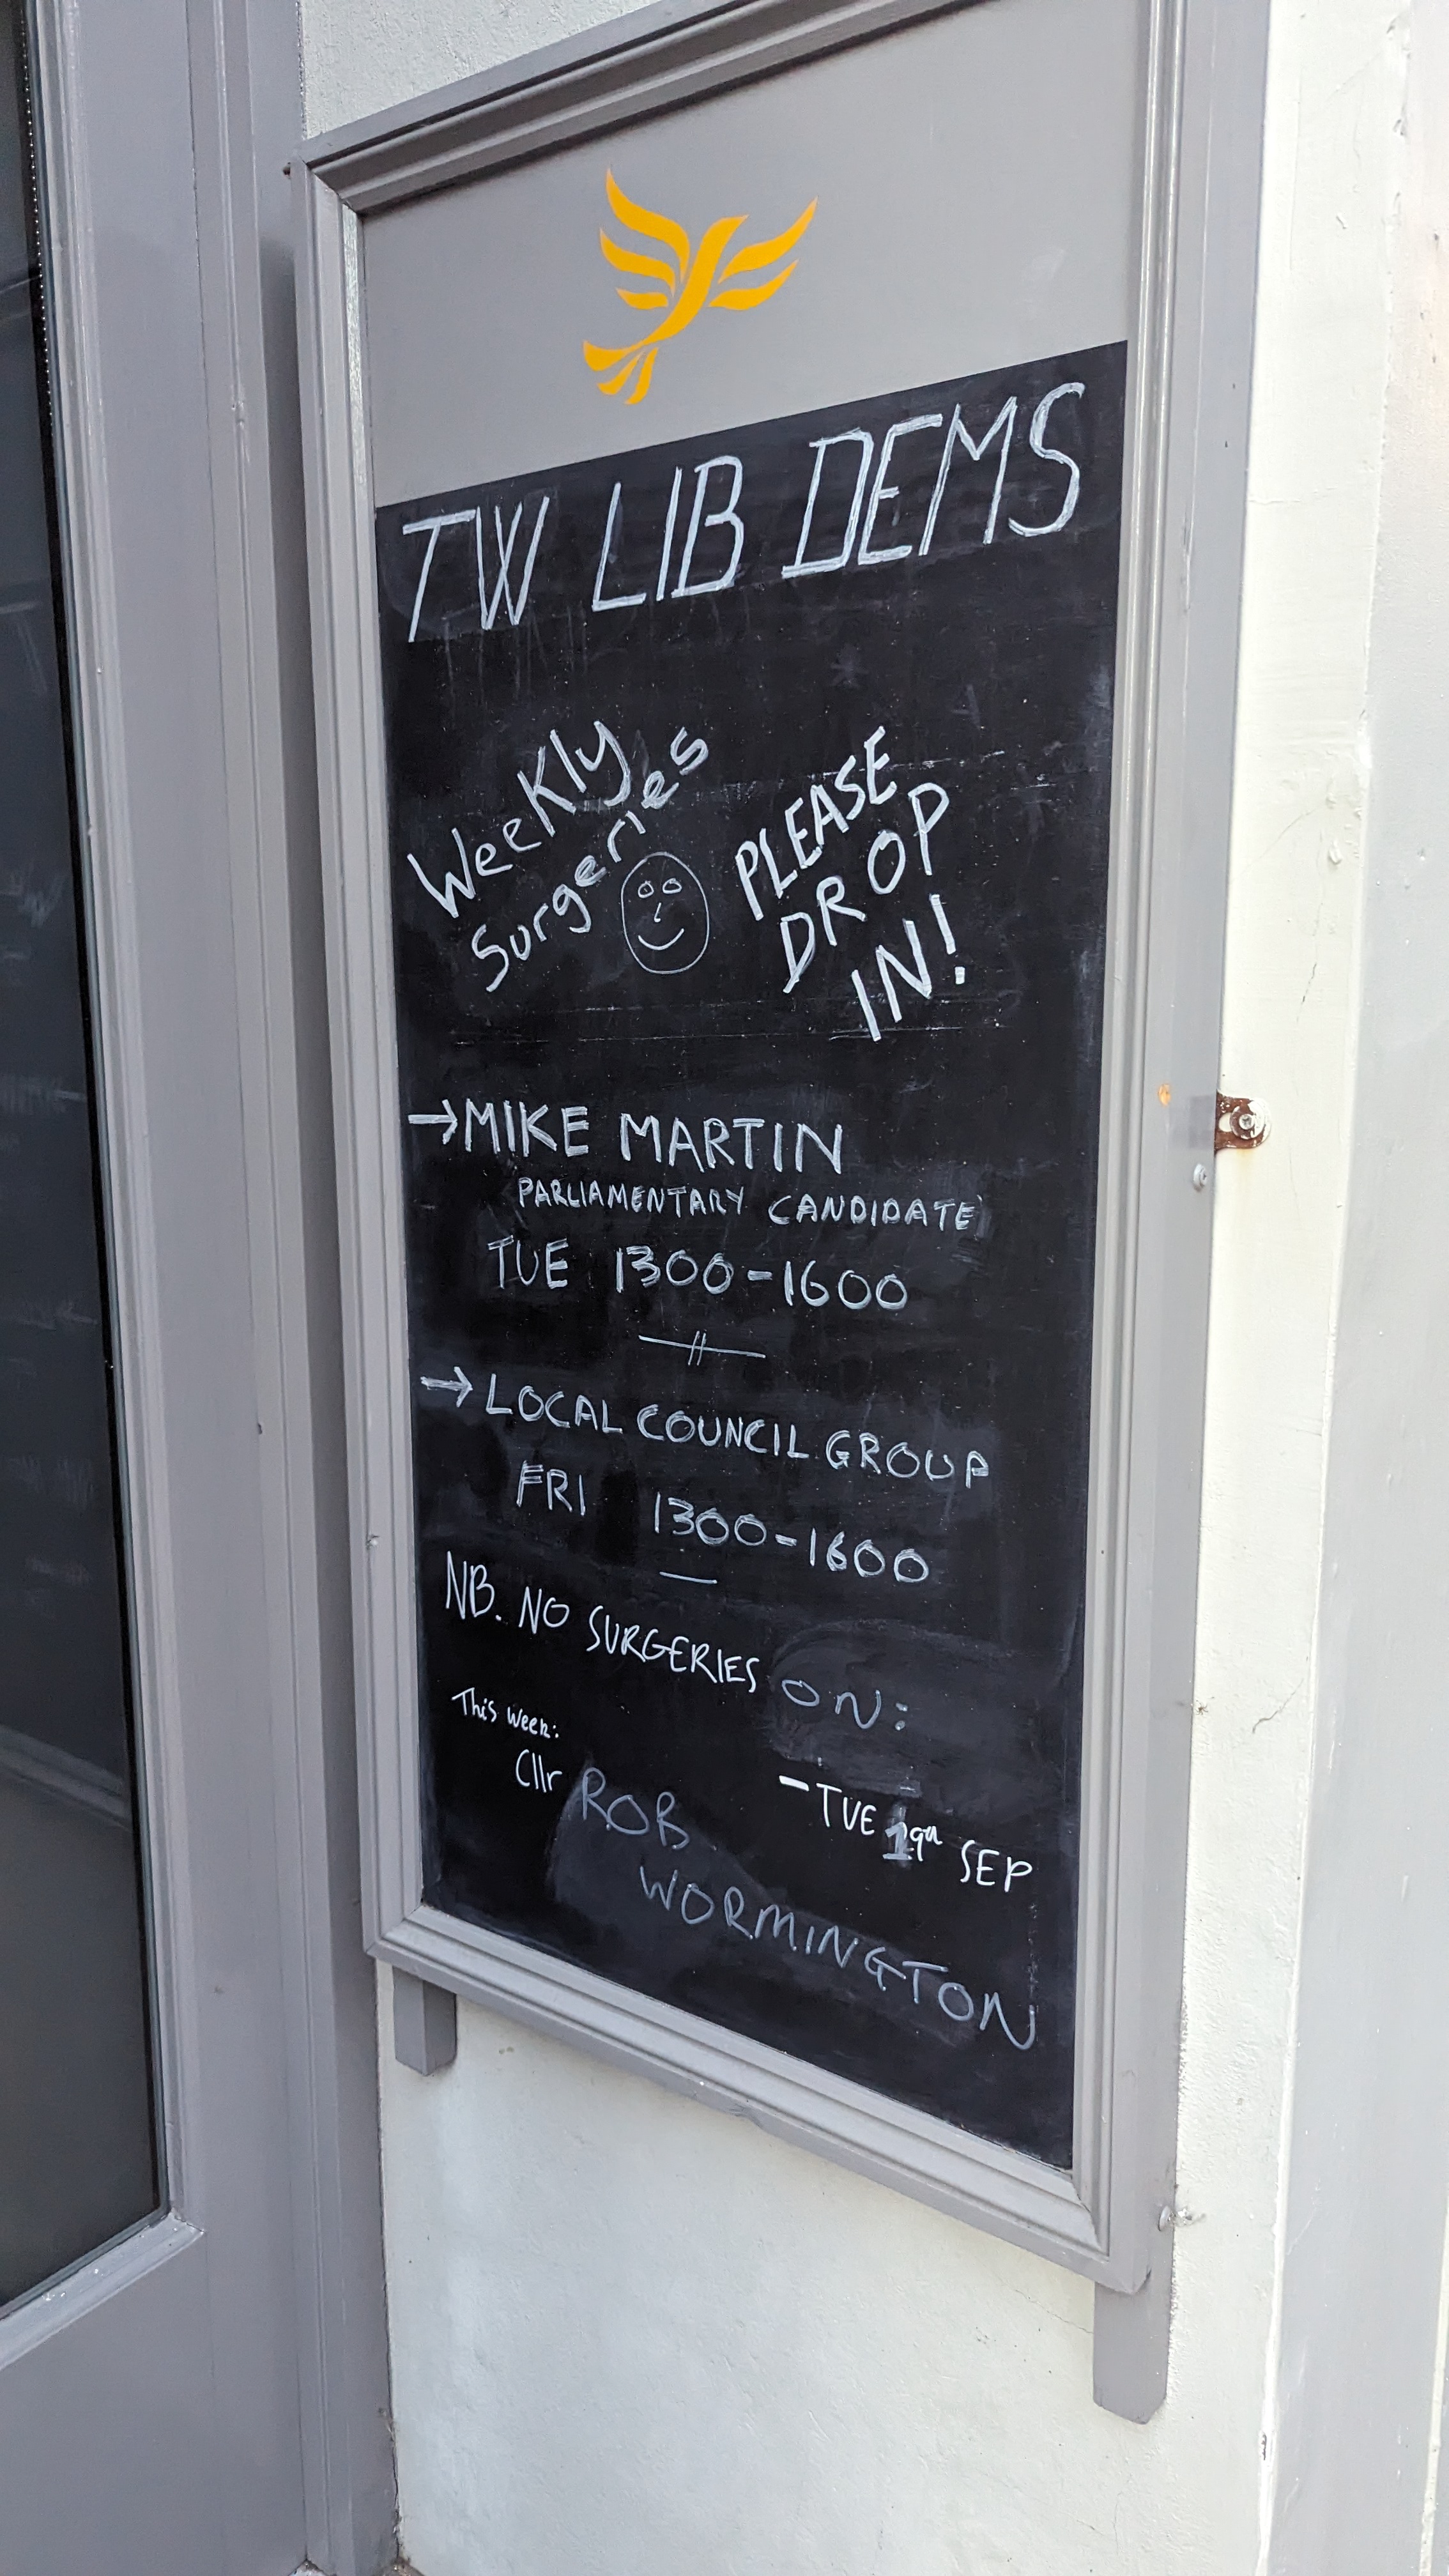 TW LIB DEMS
Weekly
Surgeries
PLEASE
DROP
IN!
→MIKE MARTIN
PARLIAMENTARY CANDIDATE
TUE 1300-1600
→LOCAL COUNCIL GROUP
FRI 1300-1600
NB. NO SURGERIES ON:
- TUE 19th SEP
This week:
Cllr ROB
WORMINGTON